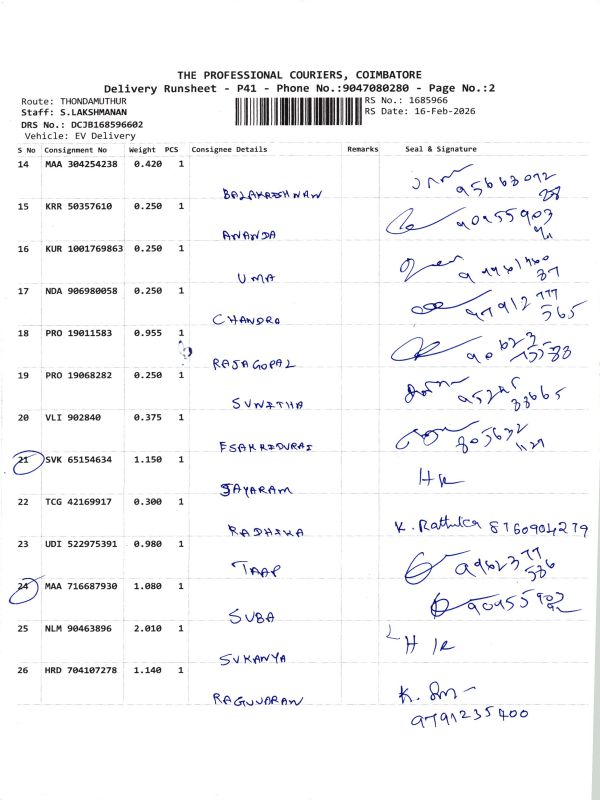 THE PROFESSIONAL COURIERS, COIMBATORE
Delivery Runsheet - P41 - Phone No.:9047080280 - Page No.:2
Route: THONDAMUTHUR RS No.: 1685966
Staff: S.LAKSHMANAN RS Date: 16-Feb-2026
DRS No.: DCJB168596602
Vehicle: EV Delivery
S No Consignment No Weight PCS Consignee Details Remarks Seal & Signature
14 MAA 304254238 0.420 1
BALAKRISHNAN
15 KRR 50357610 0.250 1
ANANDA
16 KUR 1001769863 0.250 1
UMA
17 NDA 906980058 0.250 1
CHANDRO 97912 777
565
18 PRO 19011583 0.955 1
RAJAGOPAL
19 PRO 19068282 0.250 1
SUNITHA
20 VLI 902840 0.375 1
ESAKKIDURAI
21 SVK 65154634 1.150 1
JAYARAM
22 TCG 42169917 0.300 1
RADHIKA K. Rathika 8760904279
23 UDI 522975391 0.980 1
TAAP
24 MAA 716687930 1.080 1
SUBA
25 NLM 90463896 2.010 1
SUKANYA
26 HRD 704107278 1.140 1
RAGUVARAN
9791235400